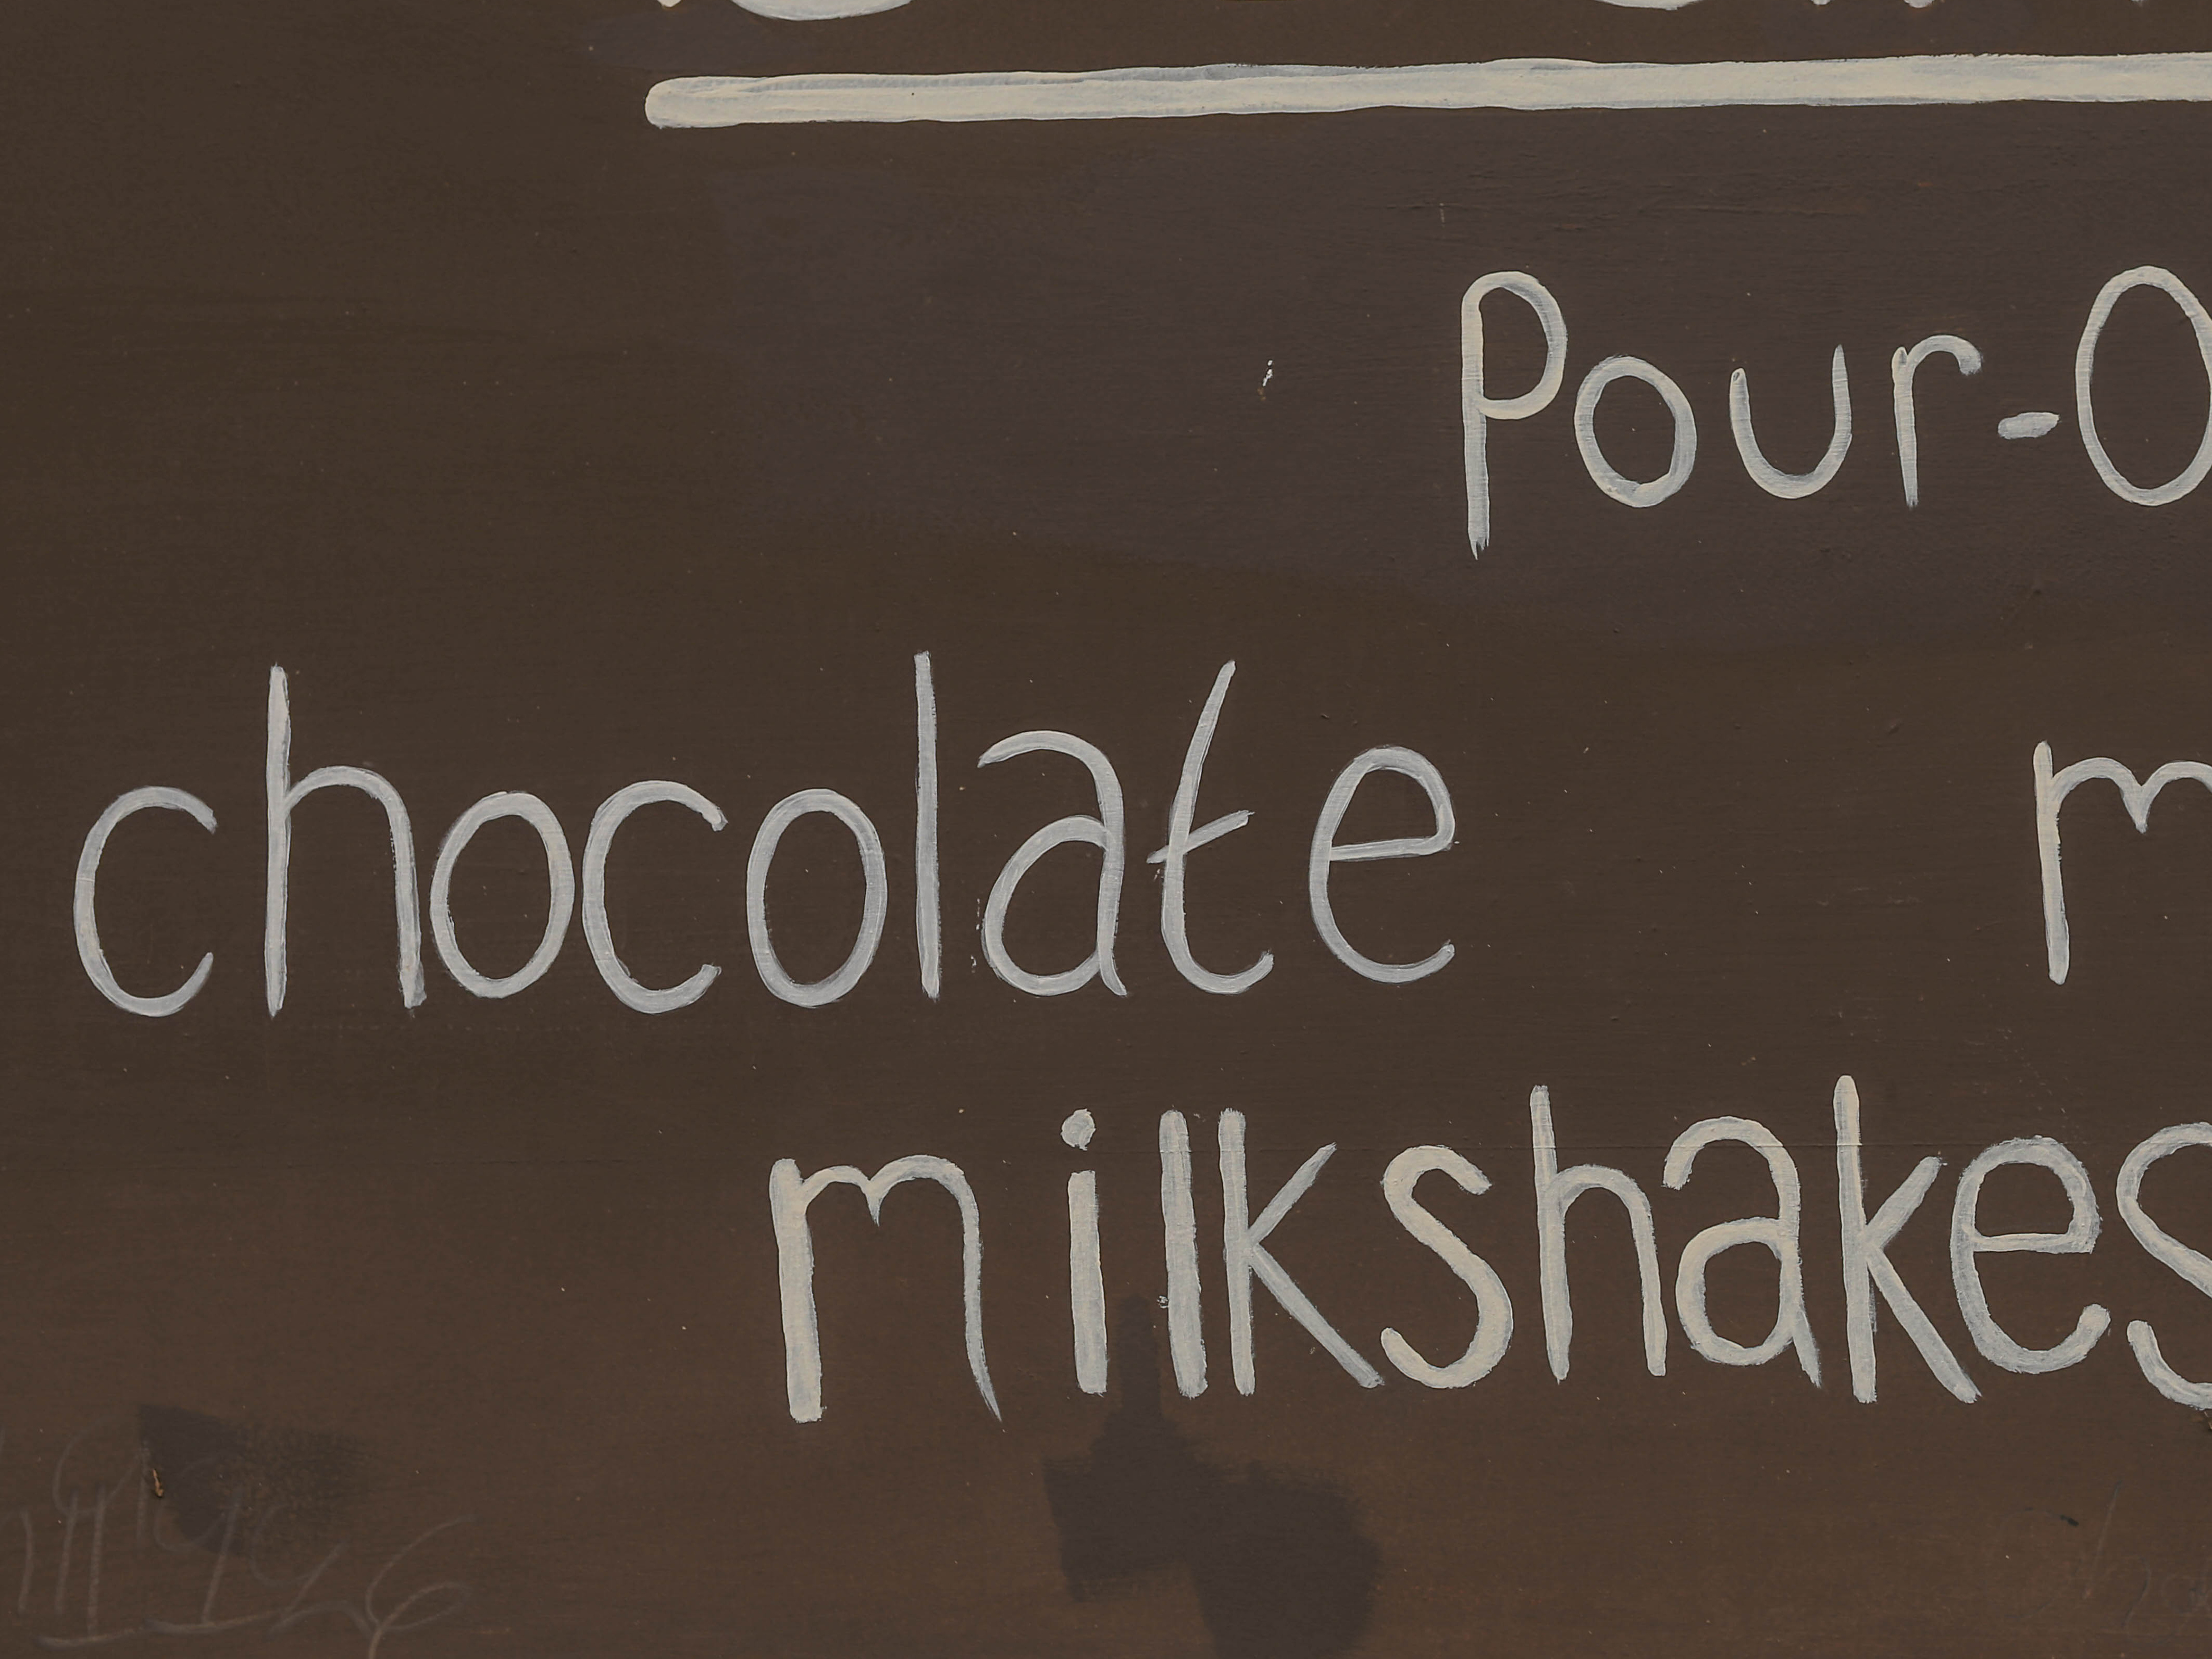 Pour-O
chocolate m
milkshakes